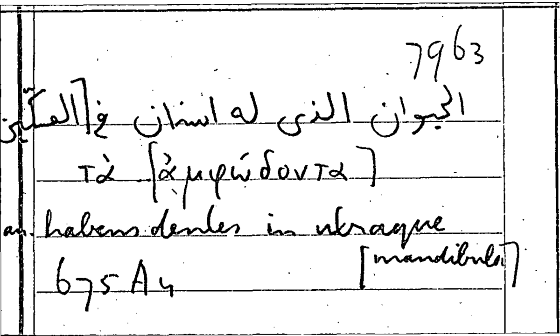 7963
الحيوان الذى له اسنان فى [الفكّين
τὰ [ἀμφώδοντα]
an. habens dentes in utraque
[mandibula]
675 A4